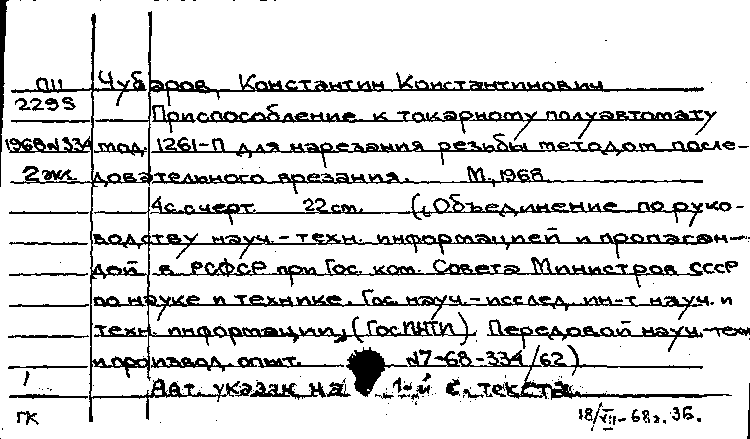 П11 Чубаров, Константин Константинович
2295 Приспособление к токарному полуавтомату
1968 N334 мод. 1261-П для нарезания резьбы методом после-
2 экз. довательного врезания. М., 1968
4 с. с черт. 22 см. ("Объединение по руко-
водству науч.-техн. информацией и пропаган-
дой в РСФСР при Гос. ком. Совета Министров СССР
по науке и технике. Гос. науч.-исслед. ин-т науч. и
техн. информации" (ГосИНТИ). Передовой науч.-техн.
и производ. опыт. N7-68-334/62)
1 Авт. указан на 1-й с. текста.
ГК 18/VII-68г. ЗБ.